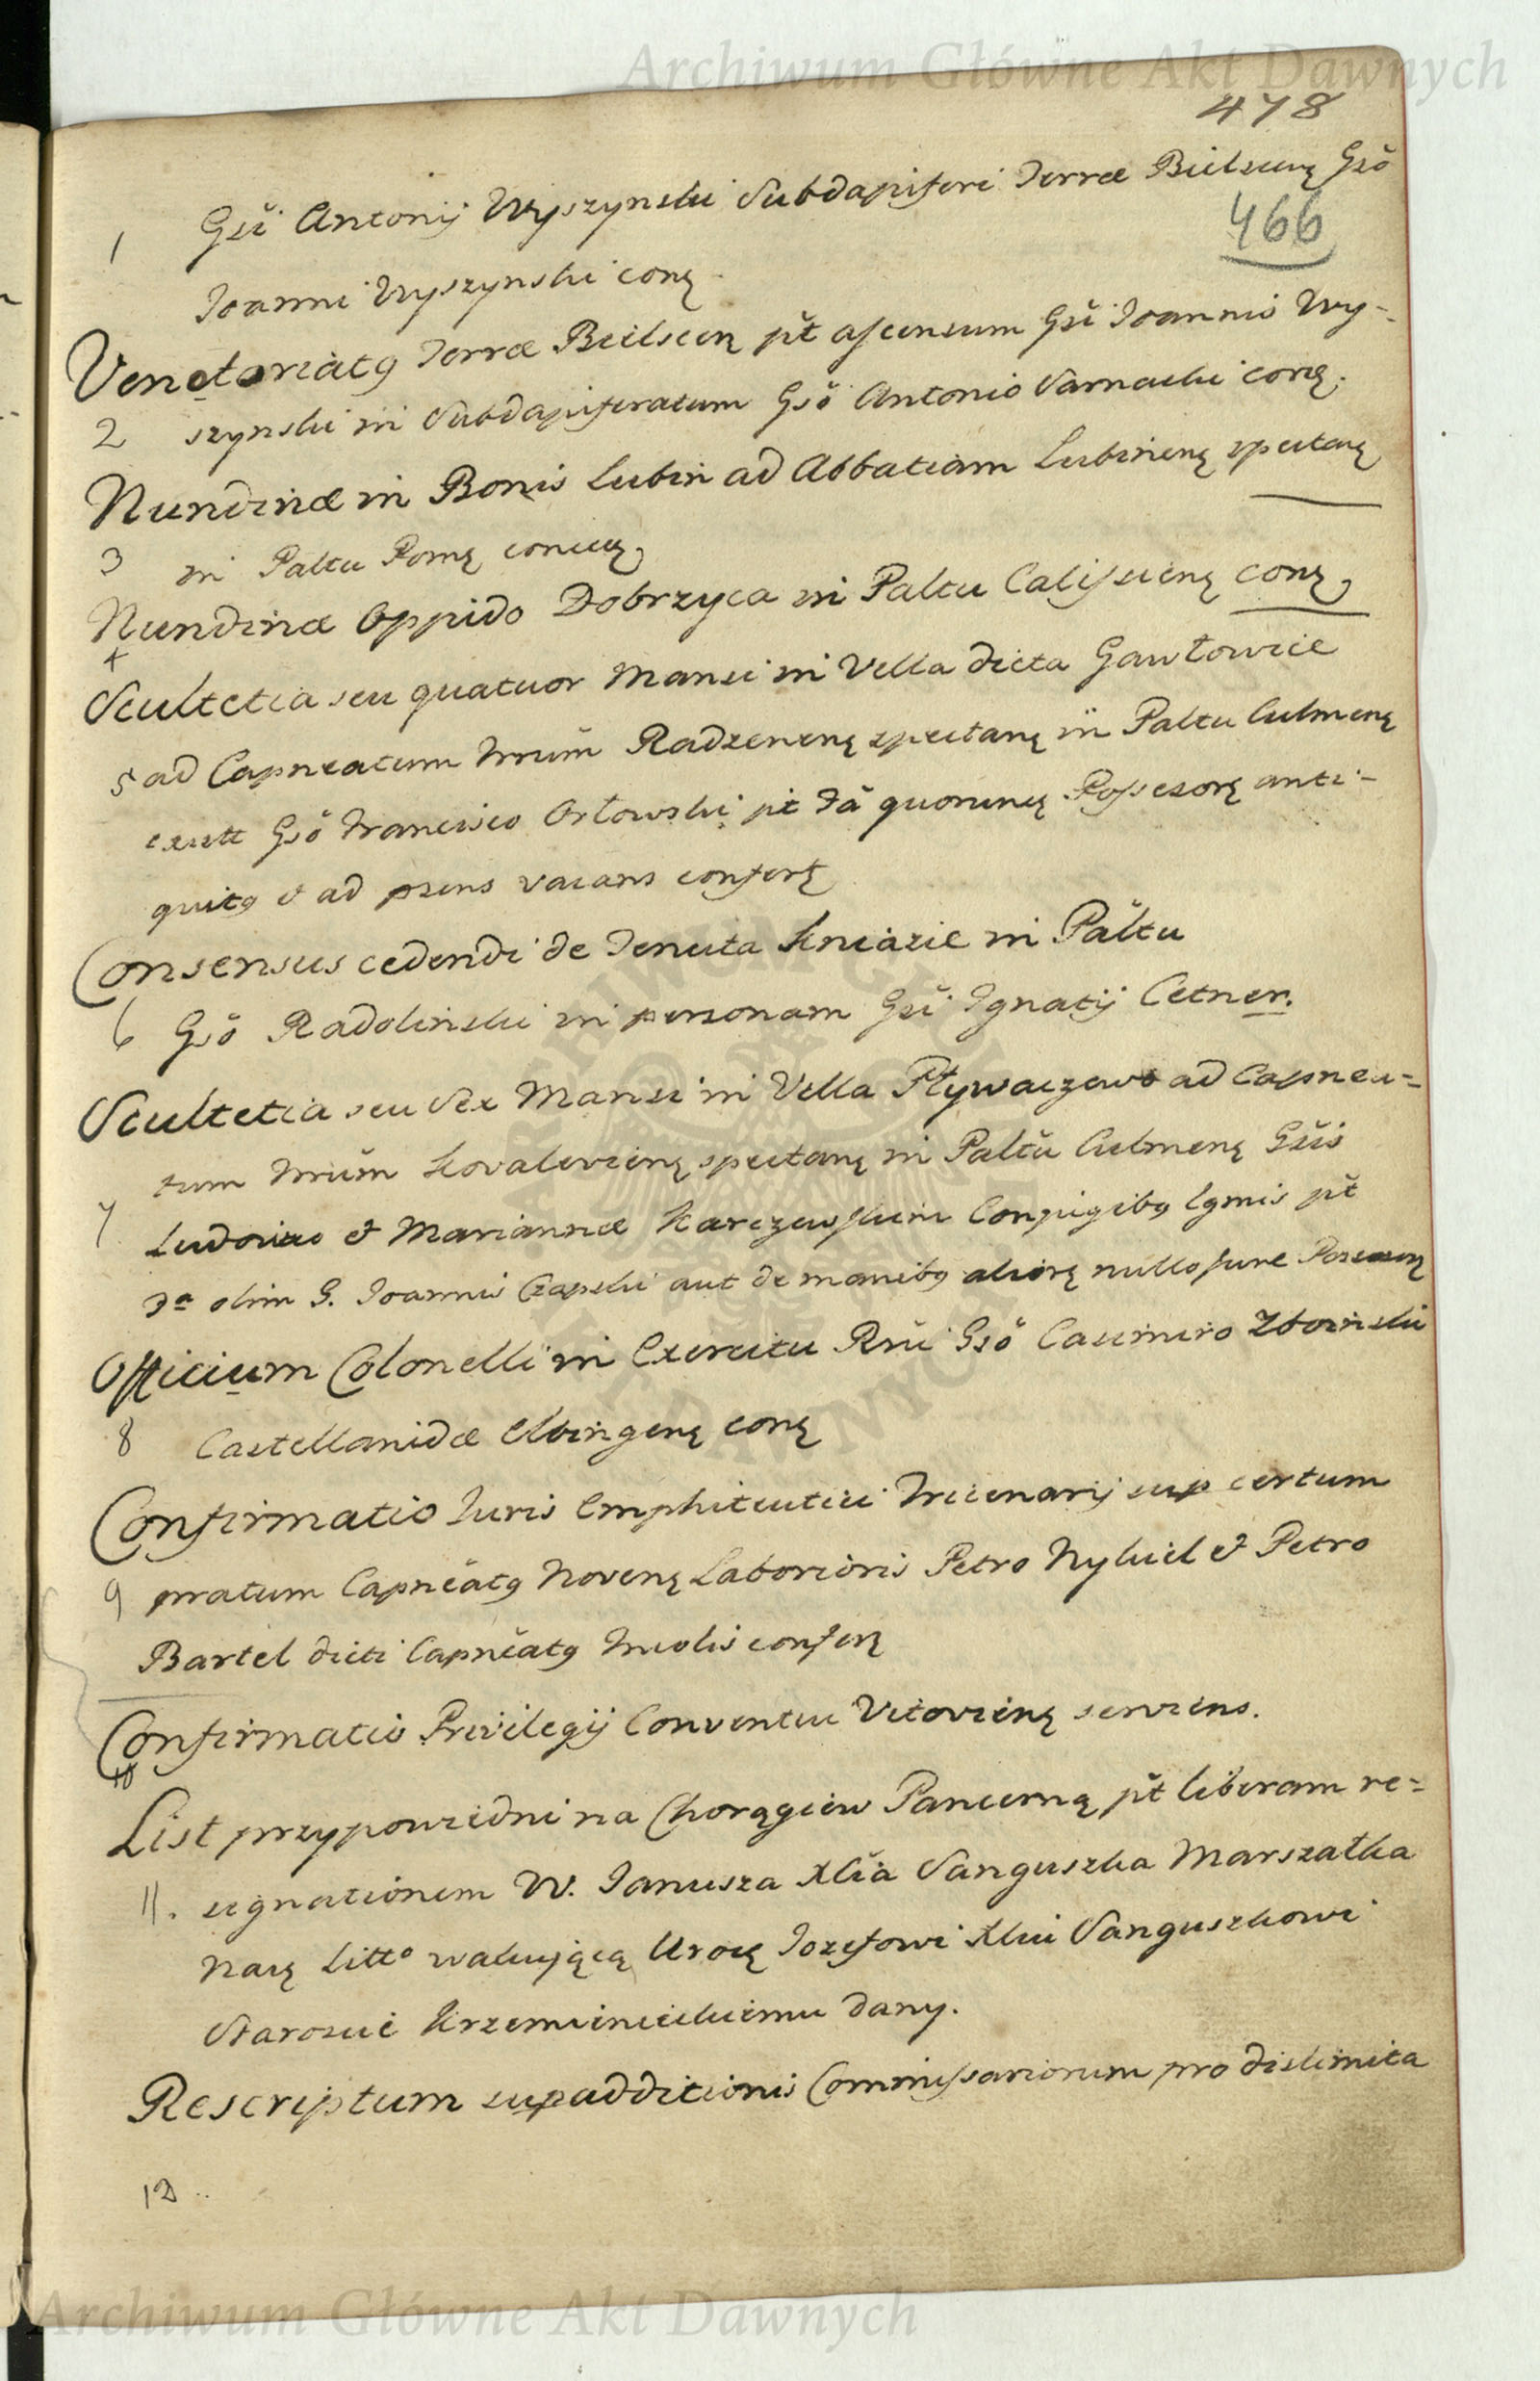 Archiwum Główne Akt Dawnych
478
Gsi Antonij Wyszynski Subdapiferi Terræ Bielscen͞ę Gsō
466
1
Joanni Wyszynski conę
Venatoriatꝯ Terræ Bielscenę p̄t ascensum Gsi Joannis Wy-
2 szynski in Subdapiferatum Gsō Antonio Sarnacki conę.
Nundinæ in Bonis Lubin ad Abbatiam Lubinenę spectanę
3 in Paltu Posnę concę
Nundinæ Oppido Dobrzyca in Paltu Calissienę conę
4
Scultetia seu quatuor Mansi in Villa dicta Gawłowice
5 ad Capneatum Nrūm Radzenenę spectanę in Paltu Culmenę
Gsō Francisco Orłowski p̄t quorumę Possessorę anti-
quitꝯ & ad psens vacans conferę
Consensus cedendi de Tenuta Kniazie in Pałtu
6 Gsō Radolinski in personam Gsi Ignatij Cetner.
Scultetia seu Sex Mansi in Villa Pływaczewo ad Capnea-
tum Nrūm Kovalevienę spectanę in Paltu Culmenę Gsis
7 Ludovico & Mariannæ Karczewskim Conjugibꝯ lgmis p̄t
olim G. Joannis Czapski aut de manibꝯ aliorę nullo Jure Possessorę
Officium Colonelli in Exercitu Rni Gsō Casimiro Zboinski
8 Castellanidæ Elbingenę conę
Confirmatio Juris Emphiteutici Tricenarij sup certum
9 pratum Capneatꝯ Novenę Laborioris Petro Nykiel & Petro
Bartel dicti Capneatꝯ Incolis conferę
Confirmatio Privilegij Conventui Vitovienę serviens.
10
List przypowiedni na Chorągiew Pancerną p̄t liberam re-
11. signationem W. Janusza Xcia Sanguszka Marszałka
Nadę Litto wakującą Urodę Jozefowi Xciu Sanguszkowi
Staroscie Krzemienieckiemu dany.
Rescriptum supadditionis Commissariorum pro dislimita
12
Archiwum Główne Akt Dawnych